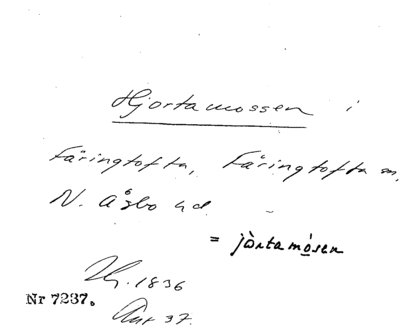 Hjortamossen i
Färingtofta, Färingtofta sn,
N. Åsbo hd.
= jòrtamósen
1836
Nr 7237.
37.